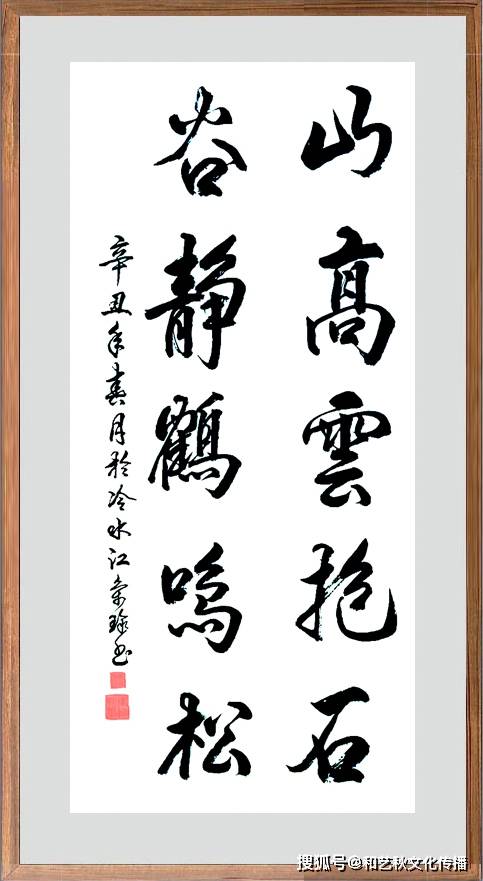 山高雲抱石
谷靜鶴鳴松
辛丑年春月於冷水江
书
搜狐号@和艺秋文化传播